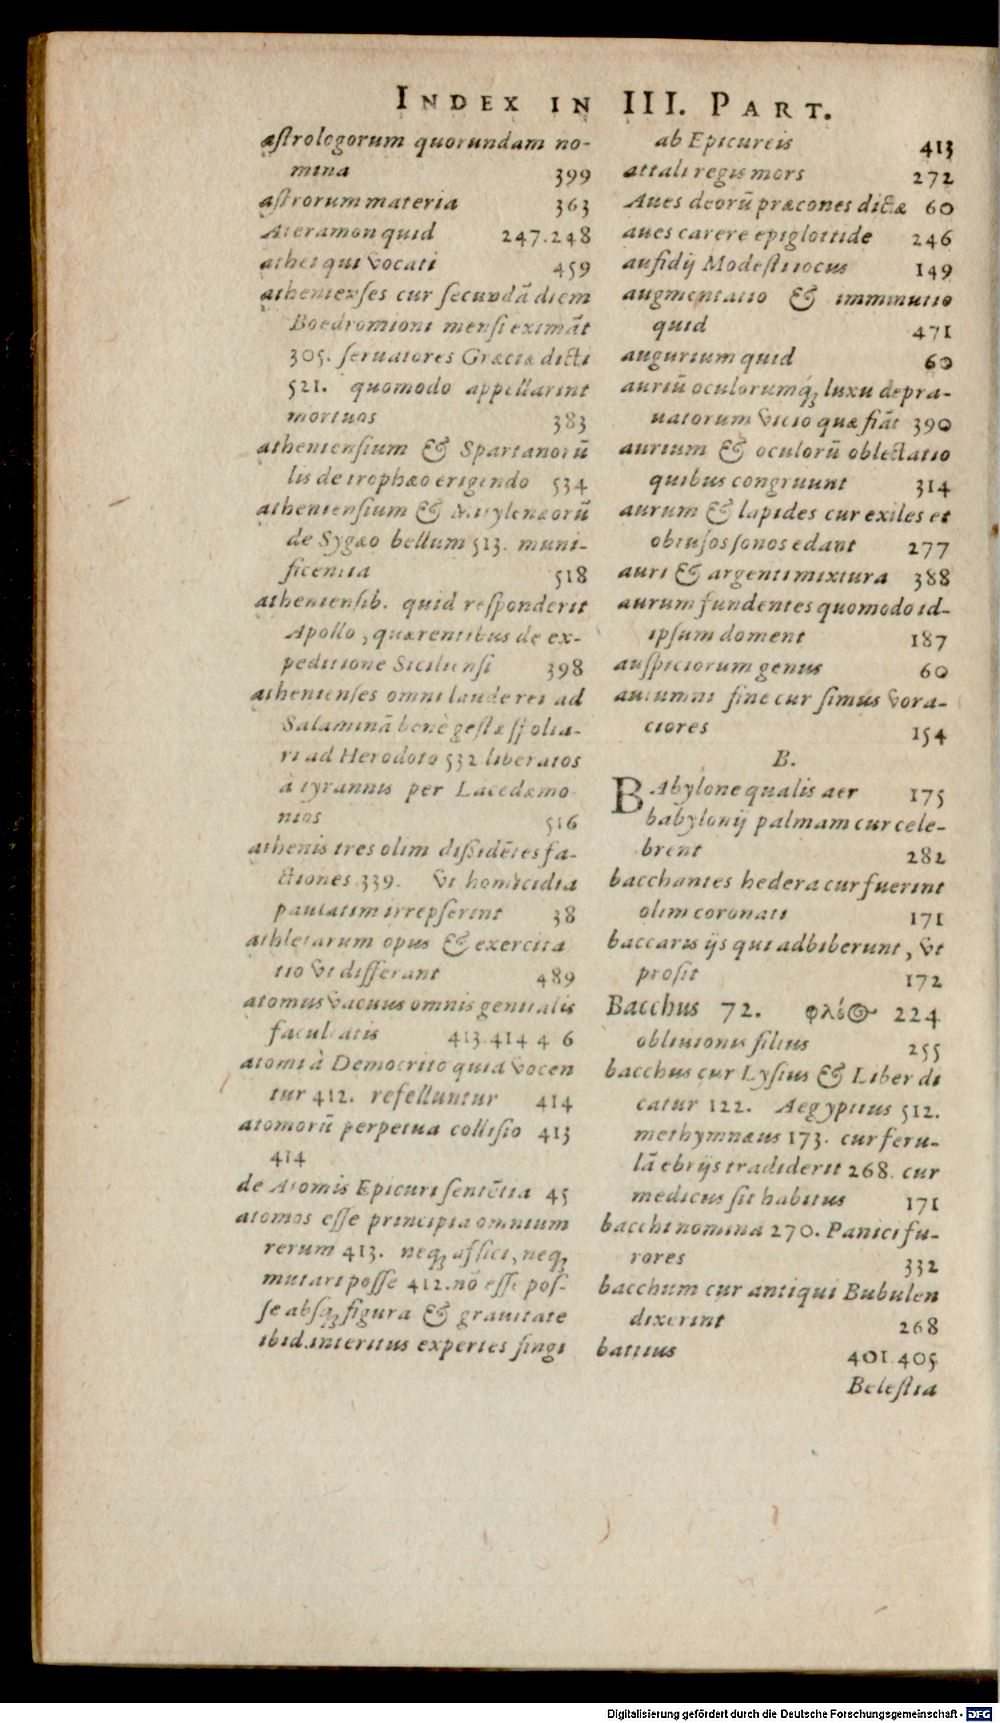 INDEX IN III. PART.
astrologorum quorundam no-
mina 399
astrorum materia 363
Ateramon quid 247.248
athei qui vocati 459
athenienses cur secundã diem
Boedromioni mensi eximãt
305. seruatores Græciæ dicti
521. quomodo appellarint
mortuos 383
atheniensium & Spartanorũ
lis de trophæo erigendo 534
atheniensium & Mitylenæorũ
de Sygæo bellum 513. muni-
ficentia 518
atheniensib. quid responderit
Apollo, quærentibus de ex-
peditione Siciliensi 398
athenienses omni laude rei ad
Salaminã benè gestæ spolia-
ri ad Herodoto 532 liberatos
à tyrannis per Lacedæmo
nios 516
athenis tres olim dissidẽtes fa-
ctiones 339. vt homicidia
paulatim irrepserint 38
athletarum opus & exercita
tio vt differant 489
atomus vacuus omnis genitalis
facultatis 413.414 4 6
atomi à Democrito quid vocen
tur 412. refelluntur 414
atomorũ perpetua collisio 413
414
de Atomis Epicuri sentẽtia 45
atomos esse principia omnium
rerum 413. neq; affici, neq;
mutari posse 412. nõ esse pos-
se absq; figura & grauitate
ibid. interitus expertes fingi
ab Epicureis 413
attali regis mors 272
Aues deorũ præcones dictæ 60
aues carere epiglottide 246
aufidij Modesti iocus 149
augmentatio & imminutio
quid 471
augurium quid 60
auriũ oculorumq́; luxu depra-
uatorum vicio quæ fiãt 390
aurium & oculorũ oblectatio
quibus congruunt 314
aurum & lapides cur exiles et
obtusos sonos edant 277
auri & argenti mixtura 388
aurum fundentes quomodo id-
ipsum doment 187
auspiciorum genus 60
autumni fine cur simus vora-
ciores 154
B.
BAbylone qualis aer 175
babylonij palmam cur cele-
brent 282
bacchantes hedera cur fuerint
olim coronati 171
baccaris ijs qui adbiberunt, vt
prosit 172
Bacchus 72. φλόος 224
obliuionis filius 255
bacchus cur Lysius & Liber di
catur 122. Aegyptius 512.
methymnæus 173. cur feru-
lã ebrijs tradiderit 268. cur
medicus sit habitus 171
bacchi nomina 270. Panici fu-
rores 332
bacchum cur antiqui Bubulen
dixerint 268
battus 401.405
Belestia
Digitalisierung gefördert durch die Deutsche Forschungsgemeinschaft - DFG